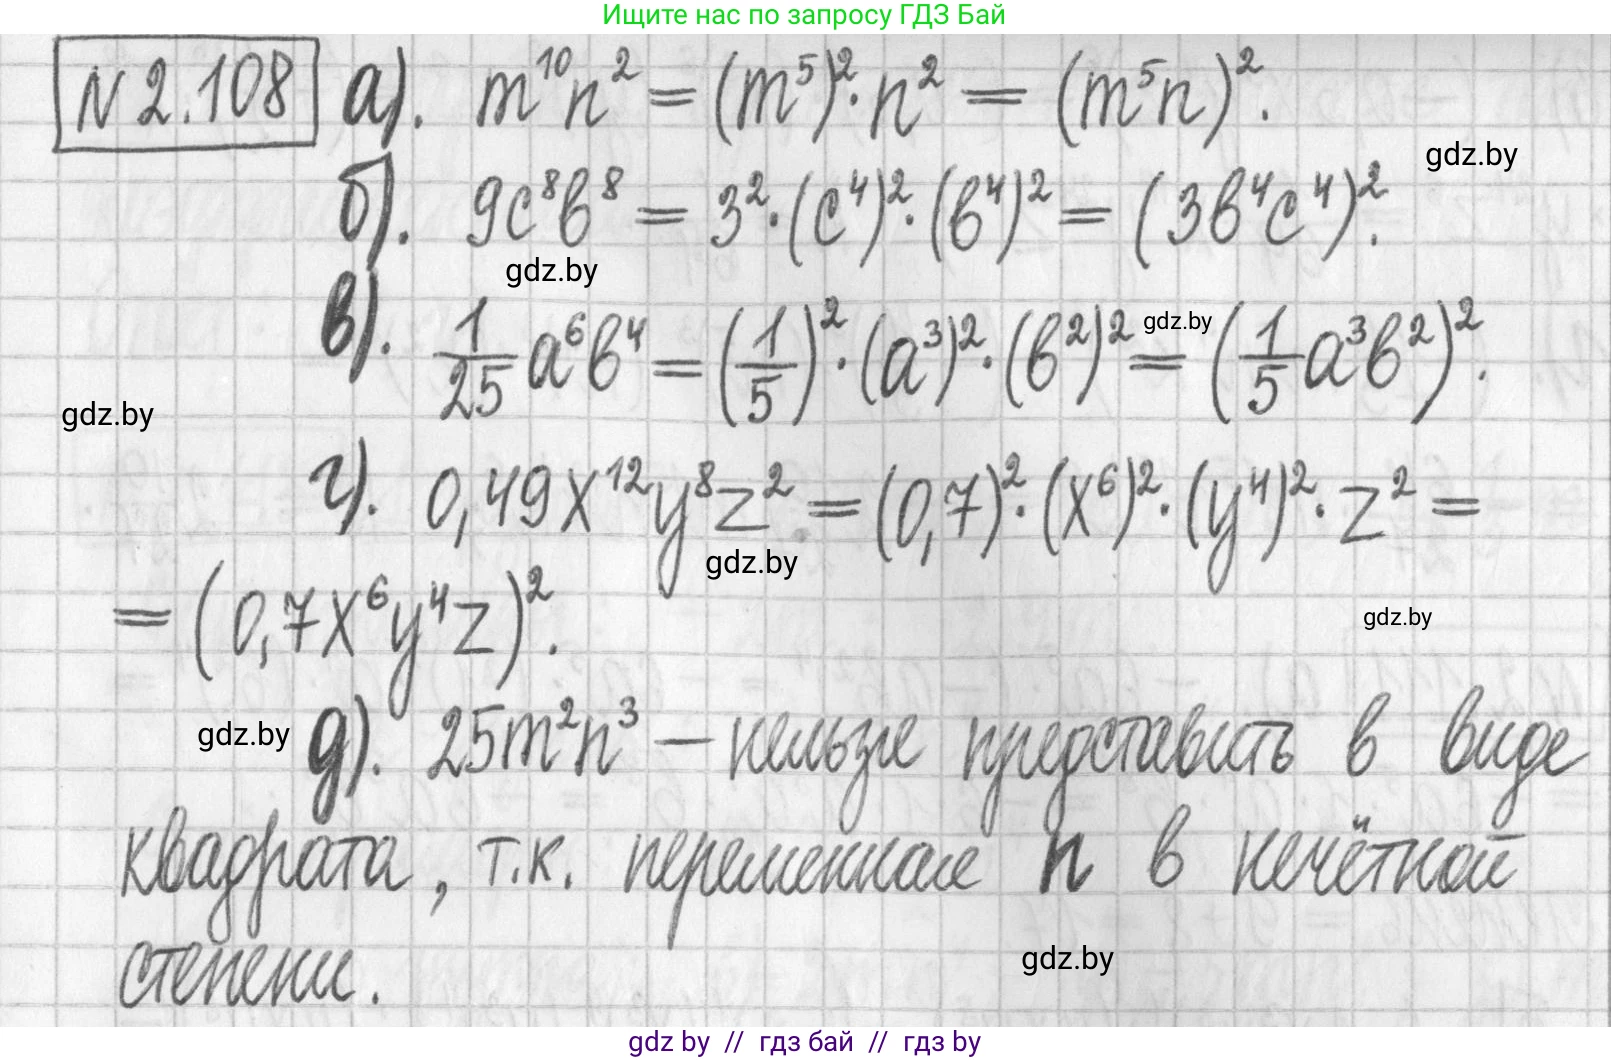 Ищите нас по запросу ГДЗ Бай
N 2.108 а). m¹⁰n² = (m⁵)²·n² = (m⁵n)².
gdz.by
б). 9c⁸b⁸ = 3²·(c⁴)²·(b⁴)² = (3b⁴c⁴)².
gdz.by
в). 1/25 a⁶b⁴ = (1/5)²·(a³)²·(b²)² = (1/5 a³b²)².
gdz.by
gdz.by
г). 0,49x¹²y⁸z² = (0,7)²·(x⁶)²·(y⁴)²·z² =
gdz.by
= (0,7x⁶y⁴z)².
gdz.by
gdz.by
д). 25m²n³ — нельзя представить в виде
квадрата, т.к. переменная n в нечётной
степени.
gdz.by
gdz by // гдз бай // гдз by